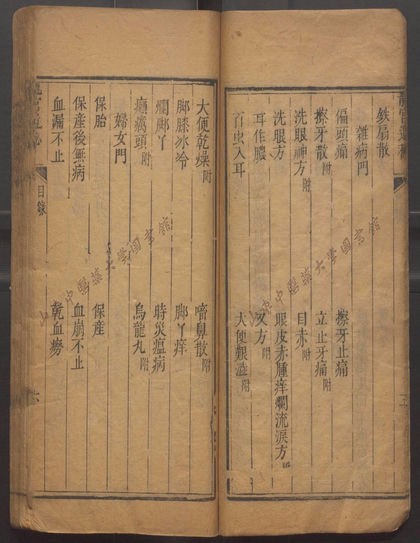 鉄扇散
雜病門
偏頭痛 擦牙止痛
擦牙散附 立止牙痛附
洗眼神方附 目赤附
洗眼方 眼皮赤腫痒爛流淚方附
耳作膿 又方附
百虫入耳 大便艱澁附
大便乾燥附 嚏鼻散附
脚膝冰冷 脚丫痒
爛脚丫 時災瘟病
癩瘋頭附 烏龍丸附
婦女門
保胎 保產
保產後無病 血崩不止
血漏不止 乾血癆
目錄